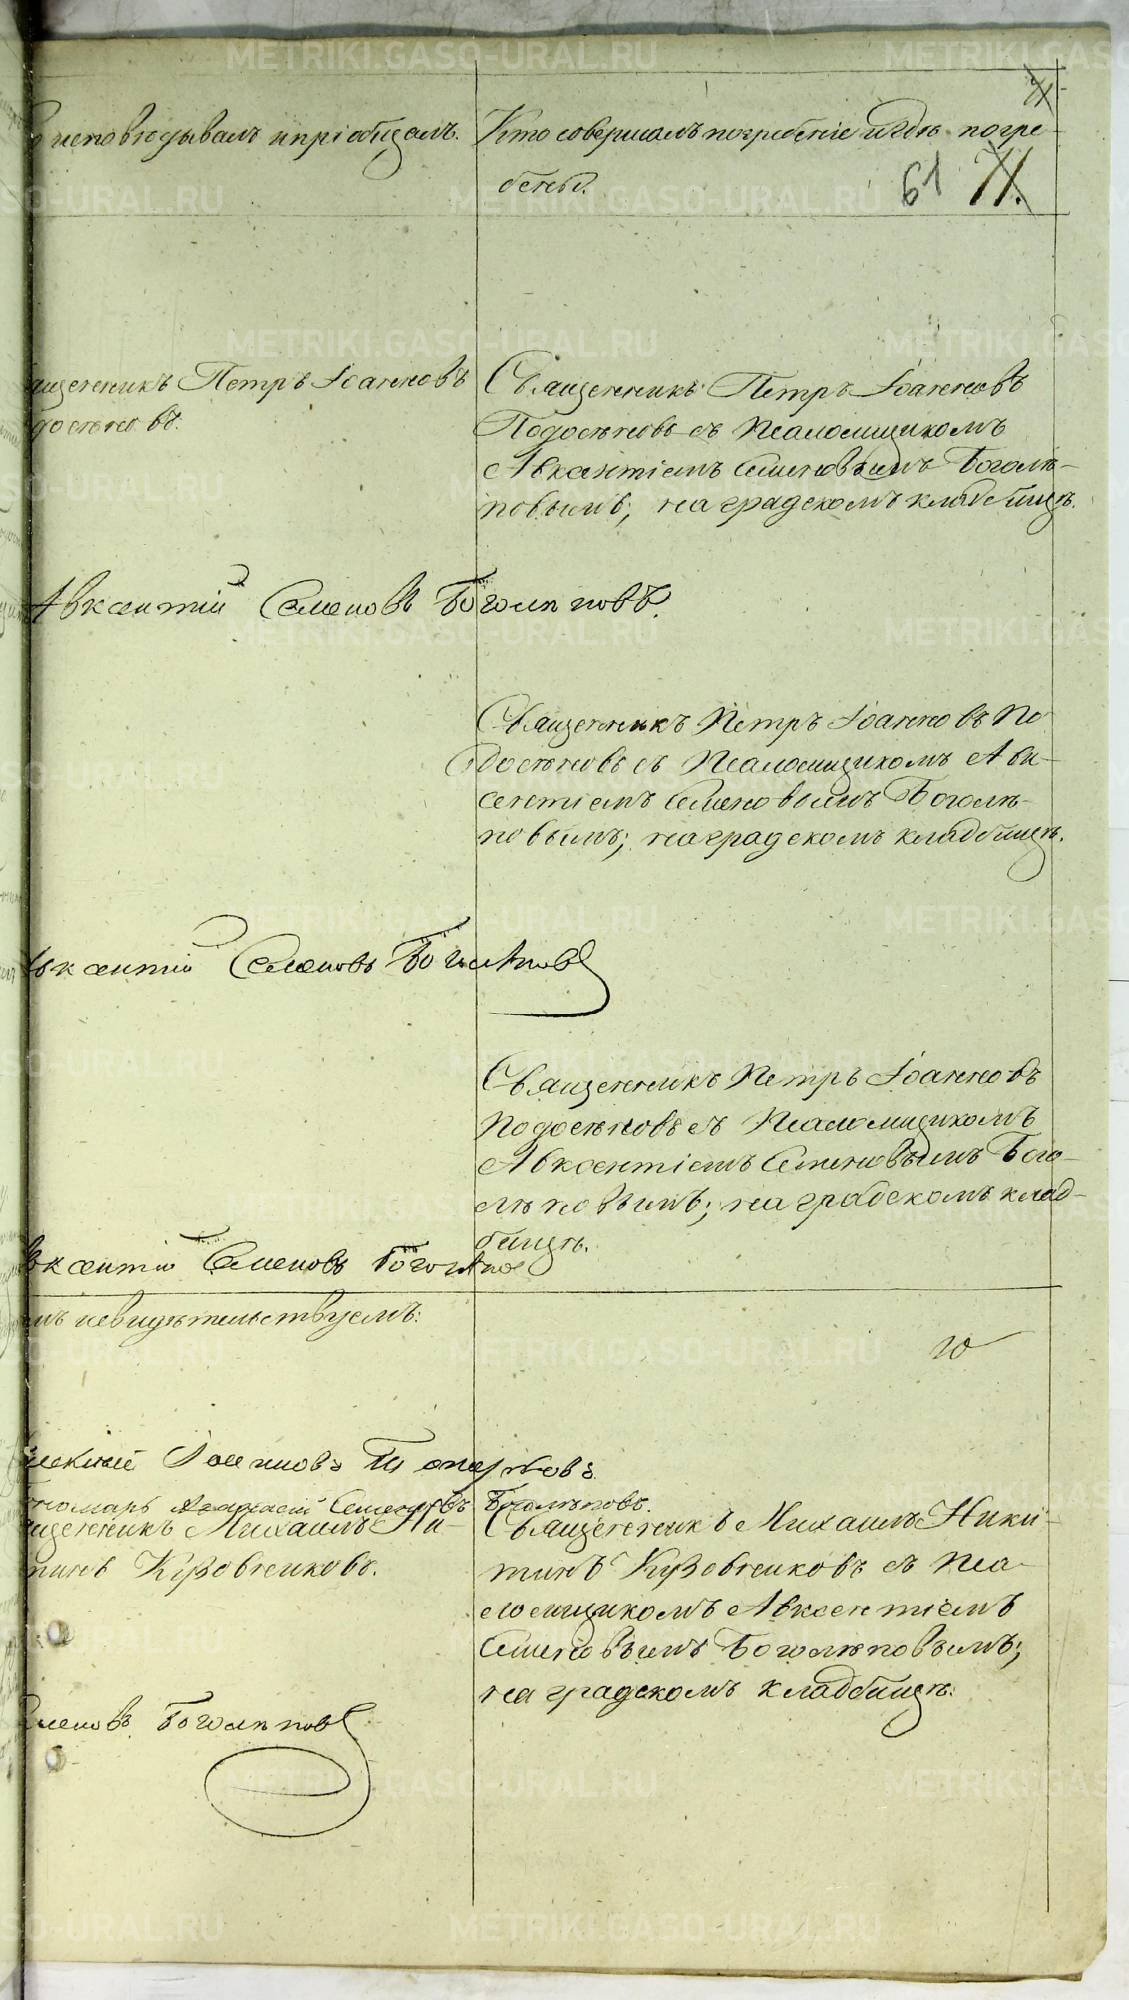 исповѣдывалъ и пріобщалъ.
Кто совершалъ погребеніе и гдѣ погре-
бены.
61 71.
71
ященникъ Петръ Іоанновъ
досѣновъ.
Священникъ Петръ Іоанновъ
Подосѣновъ съ Псаломщикомъ
Авксентіемъ Семеновымъ Боголѣ-
повымъ; на градскомъ кладбищѣ.
Авксентій Семеновъ Боголѣповъ.
Священникъ Петръ Іоанновъ По
досѣновъ съ Псаломщикомъ Авк-
сентіемъ Семеновымъ Боголѣ-
повымъ; на градскомъ кладбищѣ.
вксентій Семеновъ Боголѣповъ
Священникъ Петръ Іоанновъ
Подосѣновъ съ Псаломщикомъ
Авксентіемъ Семеновымъ Бого-
лѣповымъ; на градскомъ клад-
бищѣ.
вксентій Семеновъ Боголѣпов
мъ свидѣтельствуемъ:
Іоанновъ Топорковъ.
ономарь Авксентій Семеновъ Боголѣповъ.
ященникъ Михаилъ Ни-
тинъ Кузовниковъ.
Священникъ Михаилъ Ники-
тинъ Кузовниковъ съ Пса-
ломщикомъ Авксентіемъ
Семеновымъ Боголѣповымъ;
на градскомъ кладбищѣ.
еменовъ Боголѣповъ
METRIKI.GASO-URAL.RU